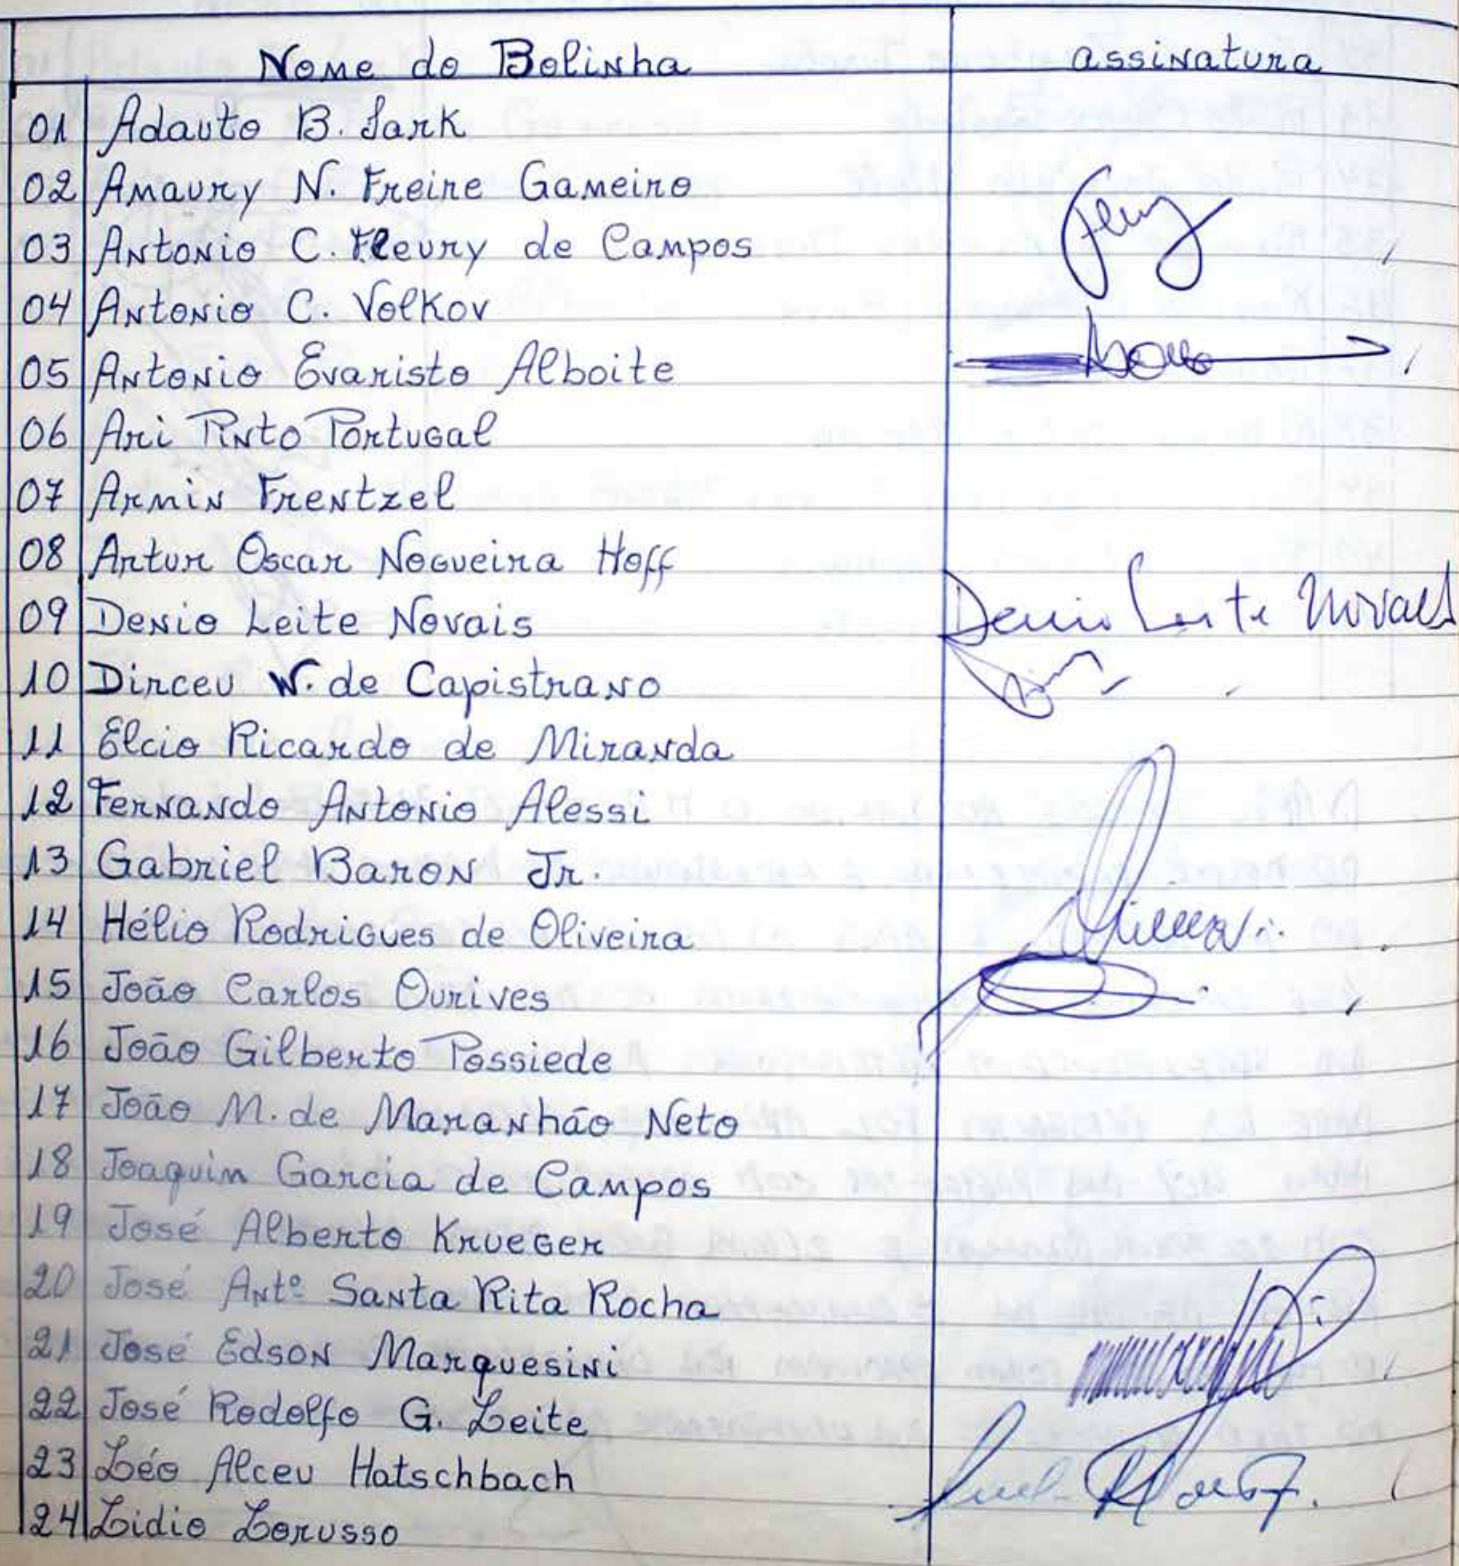 Nome do Bolinha assinatura
01 Adauto B. Sark
02 Amaury N. Freire Gameiro
03 Antonio C. Fleury de Campos Fleury
04 Antonio C. Volkov
05 Antonio Evaristo Alboite
06 Ari Pinto Portugal
07 Armin Frentzel
08 Artur Oscar Nogueira Hoff
09 Denio Leite Novais Denio Leite Novaes
10 Dirceu W. de Capistrano
11 Elcio Ricardo de Miranda
12 Fernando Antonio Alessi
13 Gabriel Baron Jr.
14 Hélio Rodrigues de Oliveira
15 João Carlos Ourives
16 João Gilberto Possiede
17 João M. de Maranhão Neto
18 Joaquim Garcia de Campos
19 José Alberto Krueger
20 José Antº Santa Rita Rocha
21 José Edson Marquesini
22 José Rodolfo G. Leite
23 Léo Alceu Hatschbach
24 Lidio Lorusso